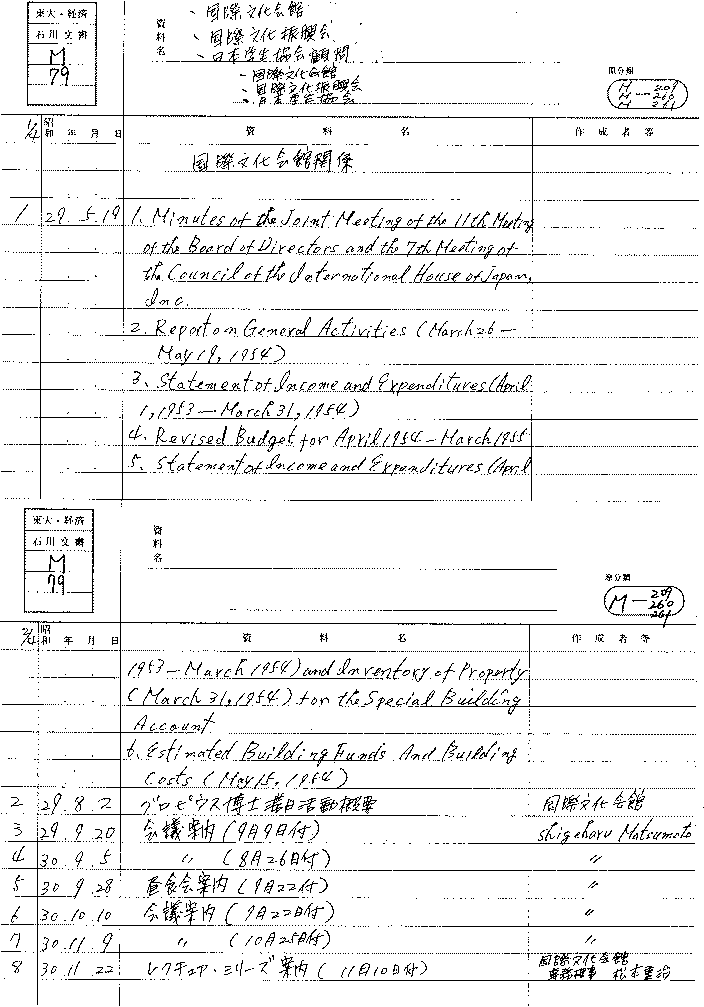 東大・経済
石川文書
M
79
資料名
、国際文化会館
、国際文化振興会
、日本学生協会顧問
、国際文化会館
、国際文化振興会
原分類
M—209
M—260
M—261
1/4 昭和 年 月 日 資料名 作成者等
国際文化会館関係
1 29. 5. 19 1. Minutes of the Joint Meeting of the 11th Meeting
of the Board of Directors and the 7th Meeting of
the Council of the International House of Japan,
Inc.
2. Report on General Activities (March 26 —
May 19, 1954)
3. Statement of Income and Expenditures (April
1, 1953 — March 31, 1954)
4. Revised Budget for April 1954 — March 1955
5. Statement of Income and Expenditures (April
東大・経済
石川文書
M
79
資料名
原分類
M—209
260
261
2/4 昭和 年 月 日 資料名 作成者等
1953 — March 1954) and Inventory of Property
(March 31, 1954) for the Special Building
Account
6. Estimated Building Funds And Building
Costs (May 15, 1954)
2 29. 8. 2 グロピウス博士滞日活動概要 国際文化会館
3 29. 9. 20 会議案内 (9月9日付) Shigeharu Matsumoto
4 30. 9. 5 〃 (8月26日付) 〃
5 30. 9. 28 昼食会案内 (9月22付) 〃
6 30. 10. 10 会議案内 (9月22日付) 〃
7 30. 11. 9 〃 (10月25日付) 〃
8 30. 11. 22 レクチュア・シリーズ案内 (11月10日付) 国際文化会館
専務理事 松本重治